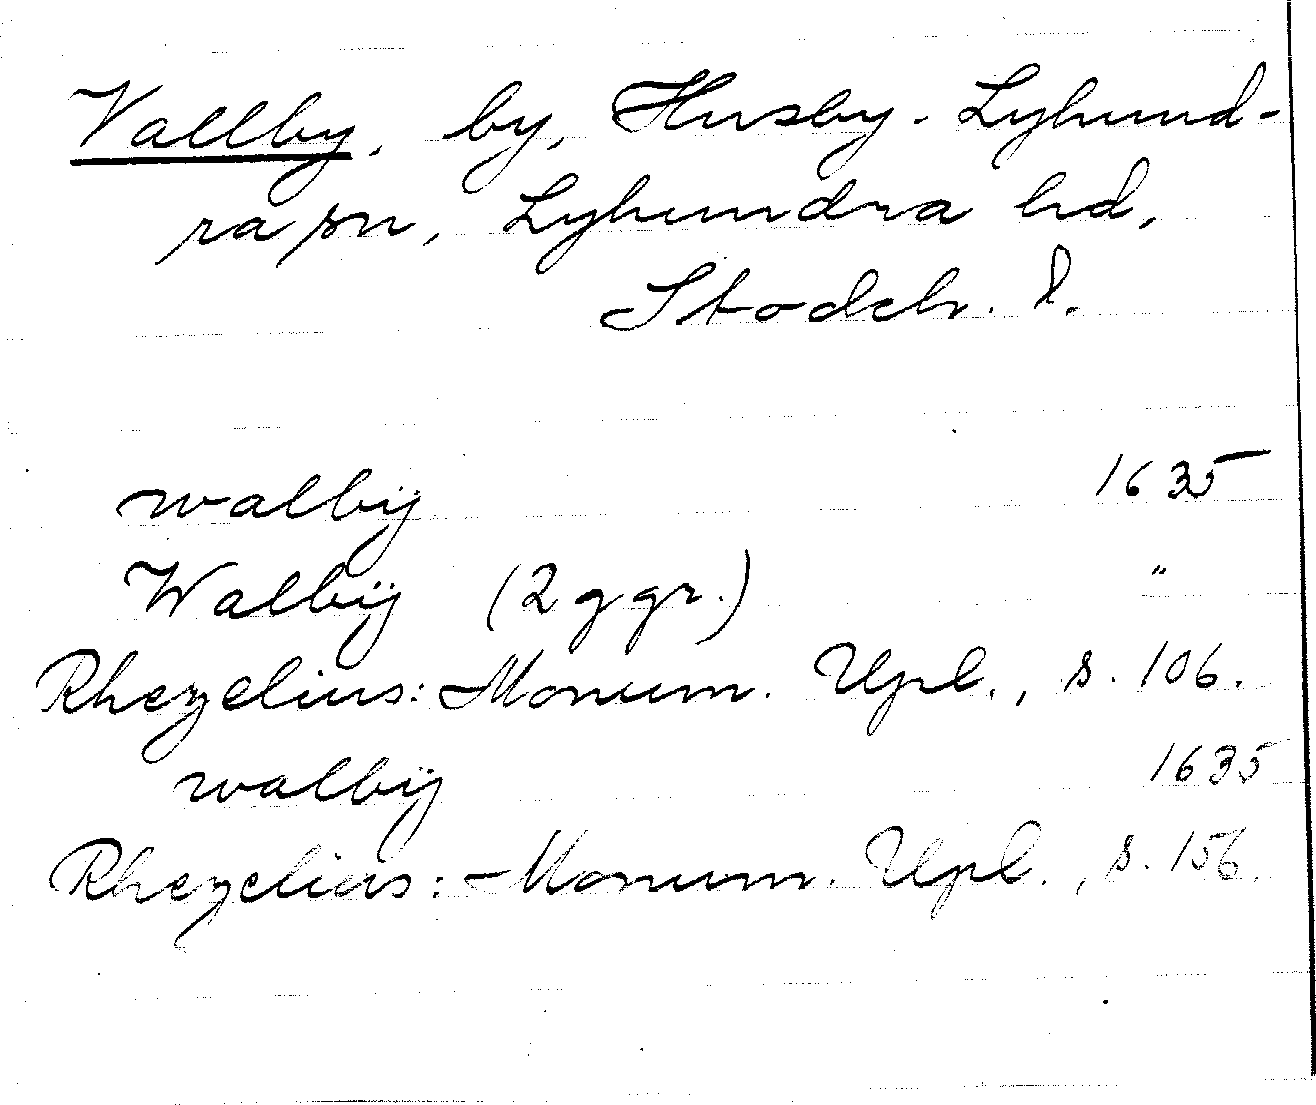 Vallby, by, Husby-Lyhund-
ra sn, Lyhundra hd,
Stockh. l.
walbÿ 1635
Walbÿ (2 ggr.) "
Rhezelius: Monum. Upl., s. 106.
walbÿ 1635
Rhezelius: Monum. Upl., s. 156.